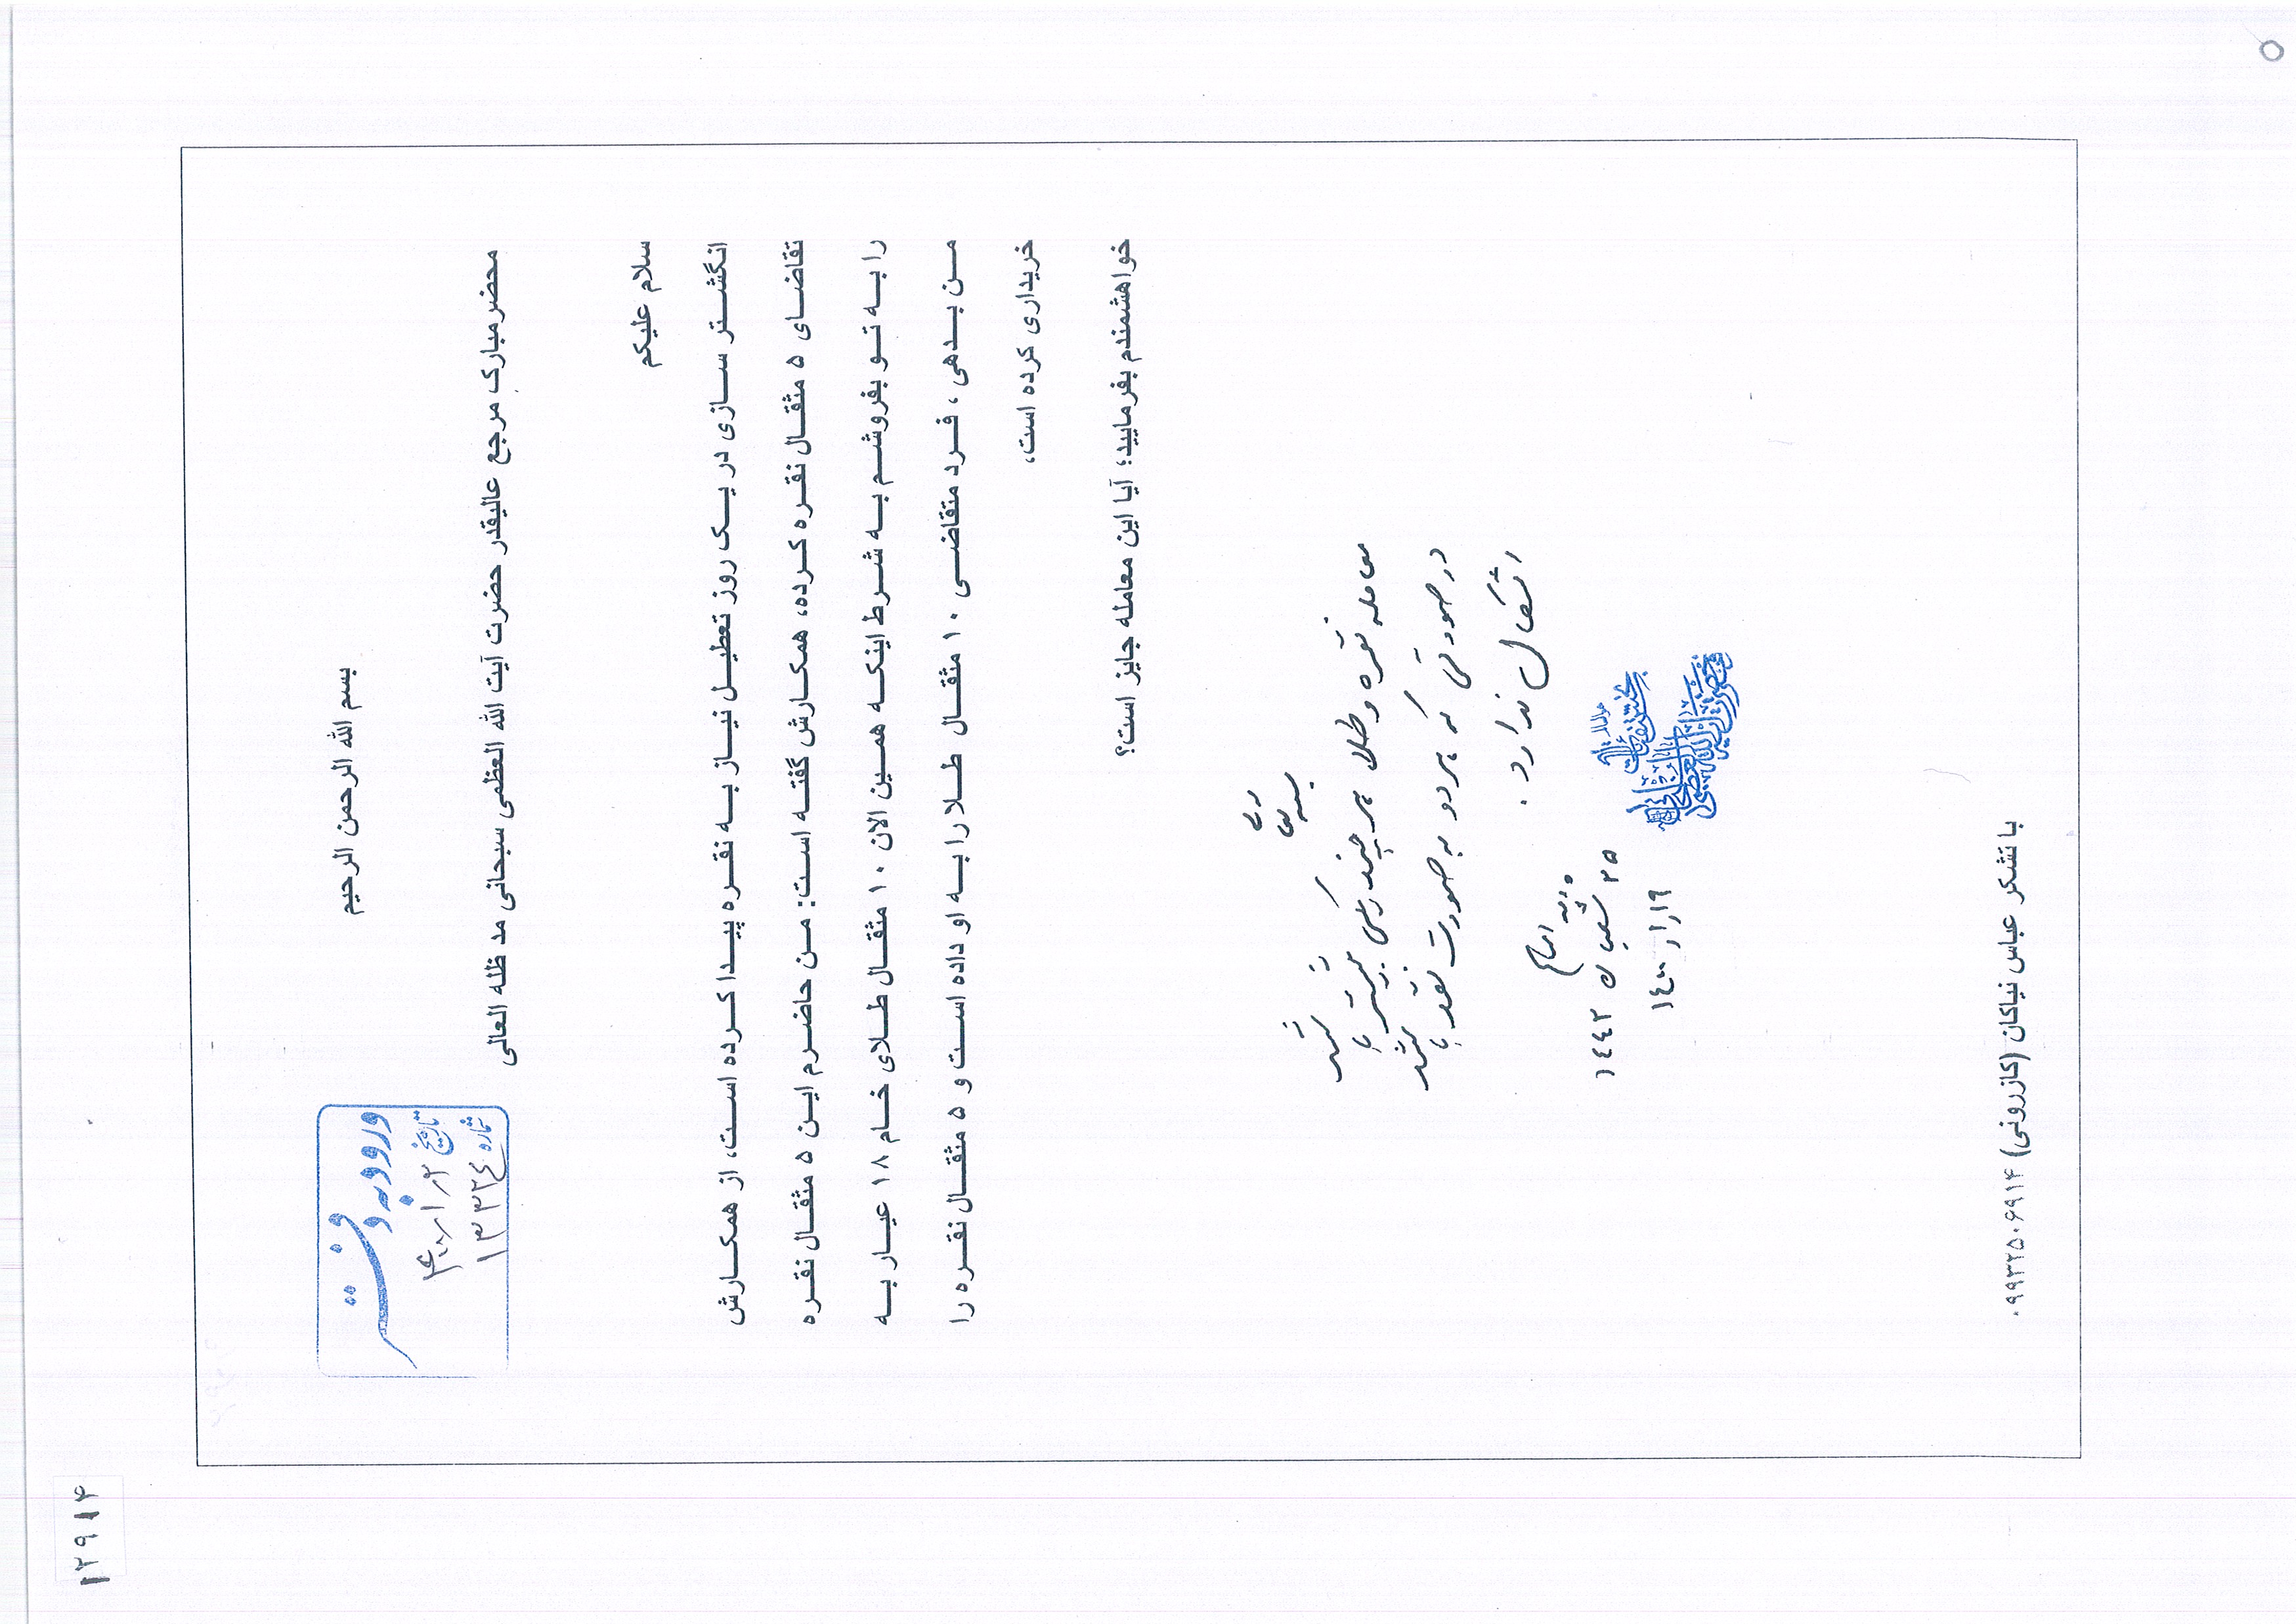 ۱۲۹۱۴
ورود به دفتر
تاریخ ۴۰۰/۱/۲
شماره ۱۳۳۲۴
بسم الله الرحمن الرحیم
محضر مبارک مرجع عالیقدر حضرت آیت الله العظمی سبحانی مد ظله العالی
سلام علیکم
انگشتر سازی در یک روز تعطیل نیاز به نقره پیدا کرده است، از همکارش
تقاضای ۵ مثقال نقره کرده، همکارش گفته است: من حاضرم این ۵ مثقال نقره
را به تو بفروشم به شرط اینکه همین الان ۱۰ مثقال طلای خام ۱۸ عیار به
من بدهی، فرد متقاضی ۱۰ مثقال طلا را به او داده است و ۵ مثقال نقره را
خریداری کرده است،
خواهشمندم بفرمایید؛ آیا این معامله جایز است؟
معامله نقره و طلا هر چند یکی بیشتر باشد
در صورتی که هر دو به صورت نقد باشد
اشکال ندارد.
۲۵ شعبان ۱۴۴۲
۱۴۰۰/۱/۱۹
با تشکر عباس نیاکان (کازرونی) ۰۹۹۳۲۵۰۶۹۱۴